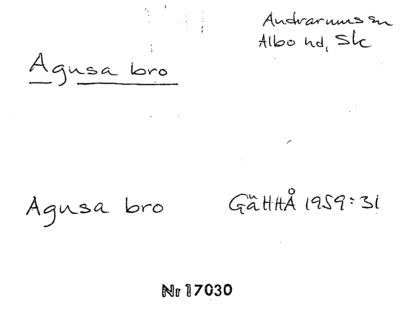 Andrarums sn
Albo hd, Sk
Agusa bro
Agusa bro GäHHÅ 1959:31
Nr 17030